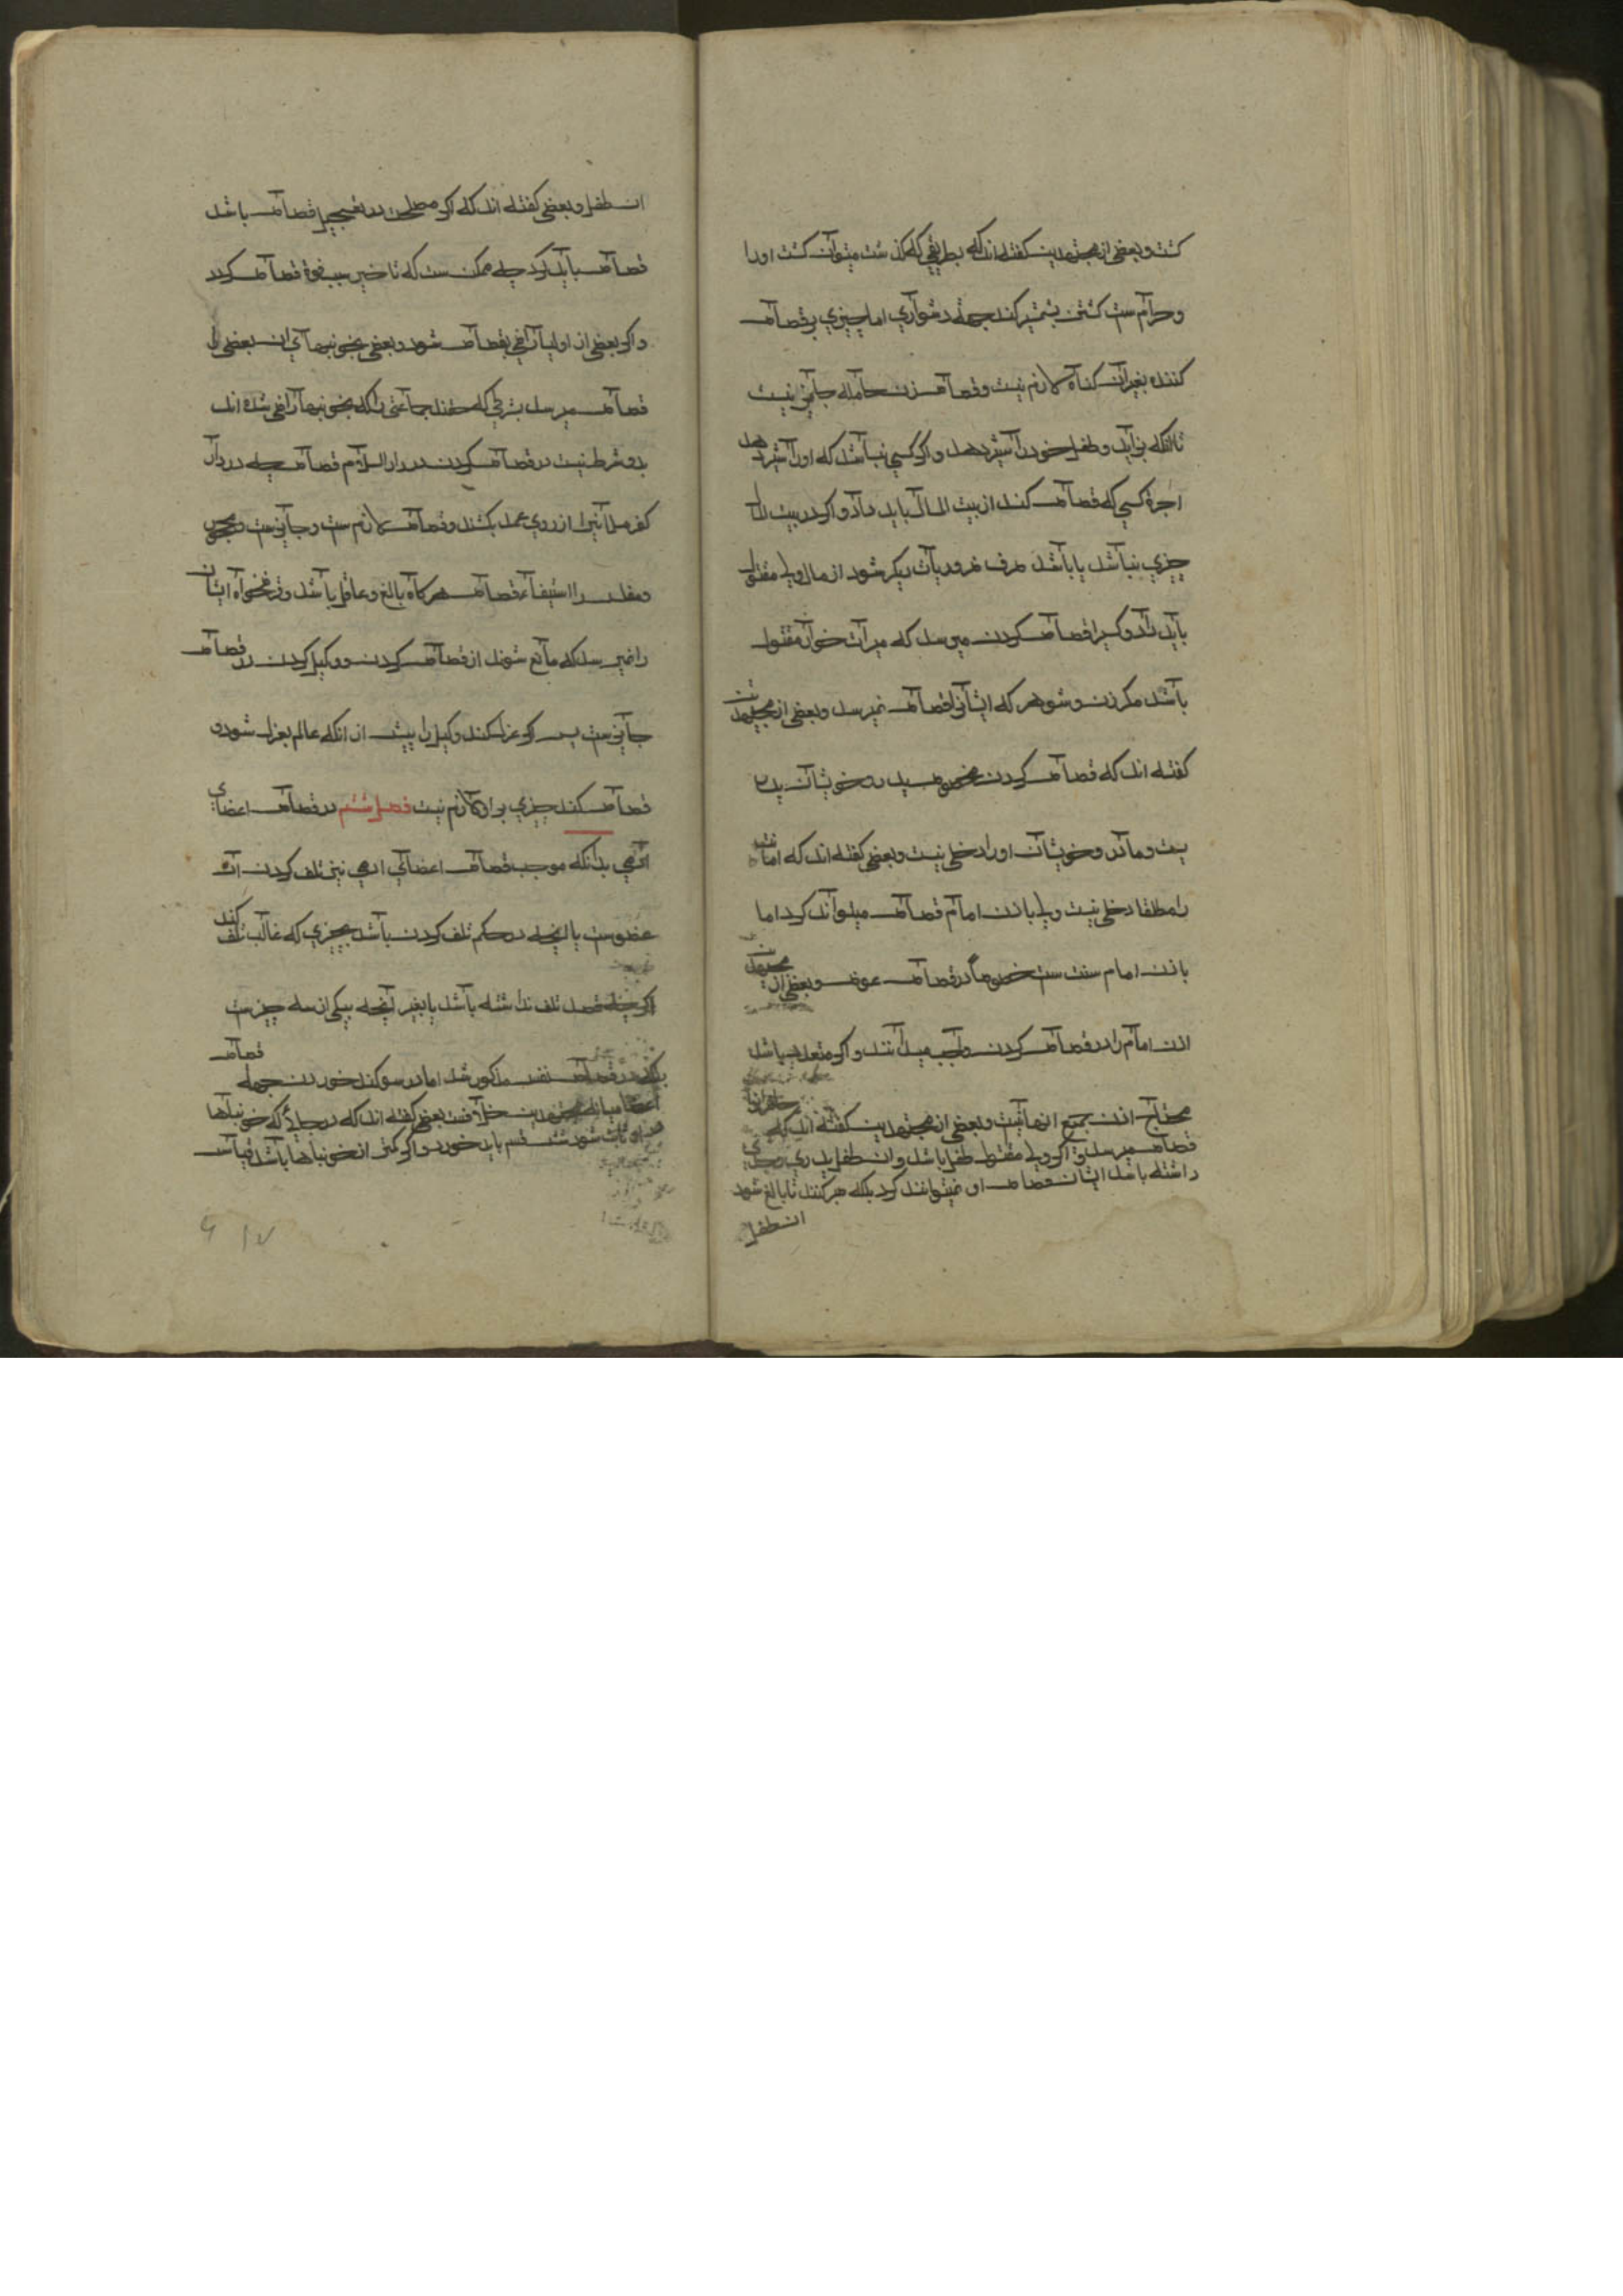 کشت و بعضی از مجتهدین گفته اند که بطریقی که کذشت میتوان کشت اورا
و حرام ست کشتن بشمشیر کند جهة دشواری اما چیزی بر قصاص
کننده بغیر آن کناه لازم نیست و قصاص زن حامله جایز نیست
تا انکه بزاید و طفل خودرا شیر دهد و اکر کسی نباشد که اورا شیر دهد
اجرة کسی که قصاص کند از بیت المال باید داد و اکر در بیت المال
چیزی نباشد یا باشد صرف ضروریات دیکر شود از مال ولی مقتول
باید داد و کسیرا قصاص کردن میرسد که میراث خوار مقتول
باشد مکر زن و شوهر که ایشانرا قصاص نمیرسد و بعضی از مجتهدین
گفته اند که قصاص کردن مخصوص پدر و خویشان پدر
یست و مادر و خویشان اورا دخلی نیست و بعضی کفته اند که
را مطلقا دخلی نیست ولی باذن امام قصاص میتواند کرد اما
باذن امام سنت ست خصوصا در قصاص عضو و بعضی از مجتهدین
اذن امام را در قصاص کردن واجب میدانند و اکر متعدد باشد
محتاج اذن جمیع انهانیست و بعضی از مجتهدین کفته اند که حاضرانرا
قصاص میرسد و اکر ولی مقتول طفل باشد وان طفل پدری وجدی
داشته باشد ایشان قصاص او نمیتوانند کرد بلکه صبر کنند تا بالغ شود
ان طفل
ان طفل و بعضی کفته اند که اکر مصلحت در تعجیل قصاص باشد
قصاص باید کرد چه ممکن ست که تاخیر سبب فوة قصاص کردد
و اکر بعضی از اولیا راضی بقصاص شوند و بعضی بخونبها آن بعضی را
قصاص میرسد بشرطی که حصه جماعتی را که بخونبها راضی شده اند
بدو شرط نیست در قصاص کردن در دار السلام قصاص چه در دار
کفر مسلمانیرا از روی عمد بکشد و قصاص لازم ست و جایزست
ومفلس را استیفاء قصاص هرکاه بالغ و عاقل باشد و قرضخواه ایشان
را نمیرسد که مانع شوند از قصاص کردن و وکیل کردن در قصاص
جایزست پس اکر عزل کند وکیل را پیش از انکه عالم بعزل شود و
قصاص کند چیزی بر او لازم نیست فصل ششم در قصاص اعضای
ادمی بدانکه موجب قصاص اعضای ادمی نیز تلف کردن آن
عضوست یا انچه در حکم تلف کردن باشد بچیزی که غالب تلف کند
اکرچه قصد تلف نداشته باشد یا بغیر آنچه بیکی از سه چیزست
در قصاص نفس مذکور شد اما در سوکند خوردن جهة قصاص
اعضا میانه مجتهدین خلافست بعضی کفته اند که در جائی که خونبهای
او ثابت شود شش قسم باید خورد و اکر کمتر از خونبها باشد قیاس